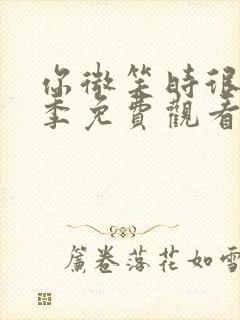 你微笑時很
季免費觀看
簾卷落花如雪